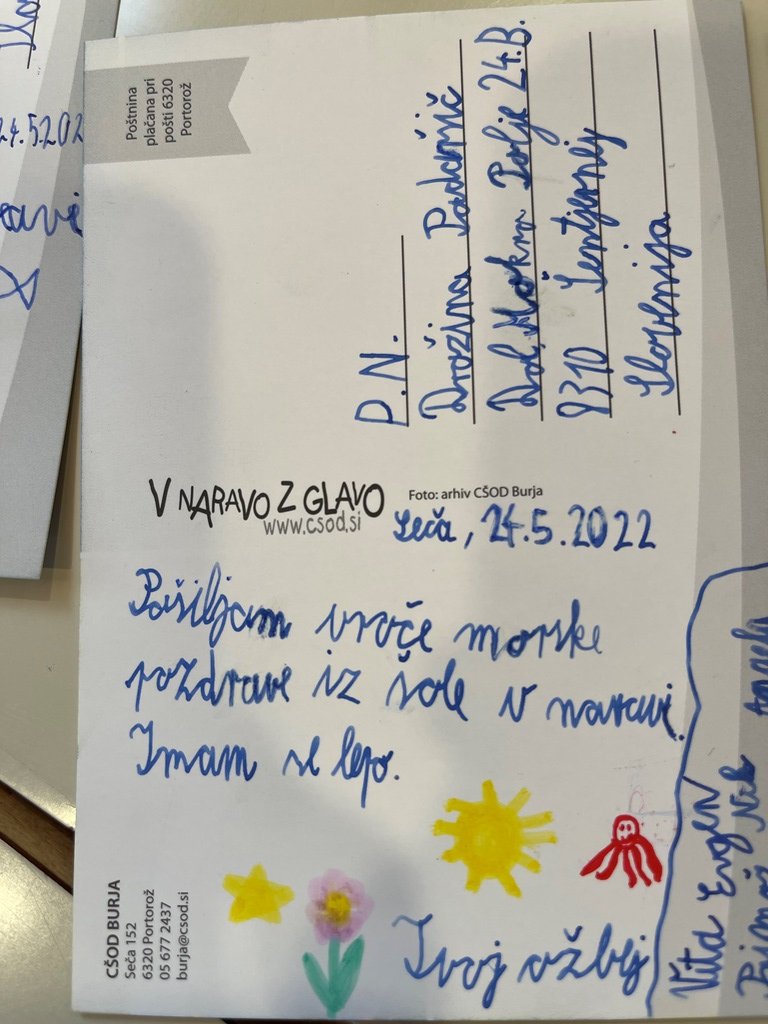 24.5.202
Poštnina
plačana pri
pošti 6320
Portorož
P.N.
Družina Padovič
Dol. Mokro Polje 24.B.
8310 Šentjernej
Slovenija
V NARAVO Z GLAVO
www.csod.si
Foto: arhiv CŠOD Burja
Seča, 24.5.2022
Pošiljam vroče morske
pozdrave iz šole v naravi.
Imam se lepo.
CŠOD BURJA
Seča 152
6320 Portorož
05 677 2437
burja@csod.si
Tvoj ožbej
Vita Evgen
Primož Nik Angela